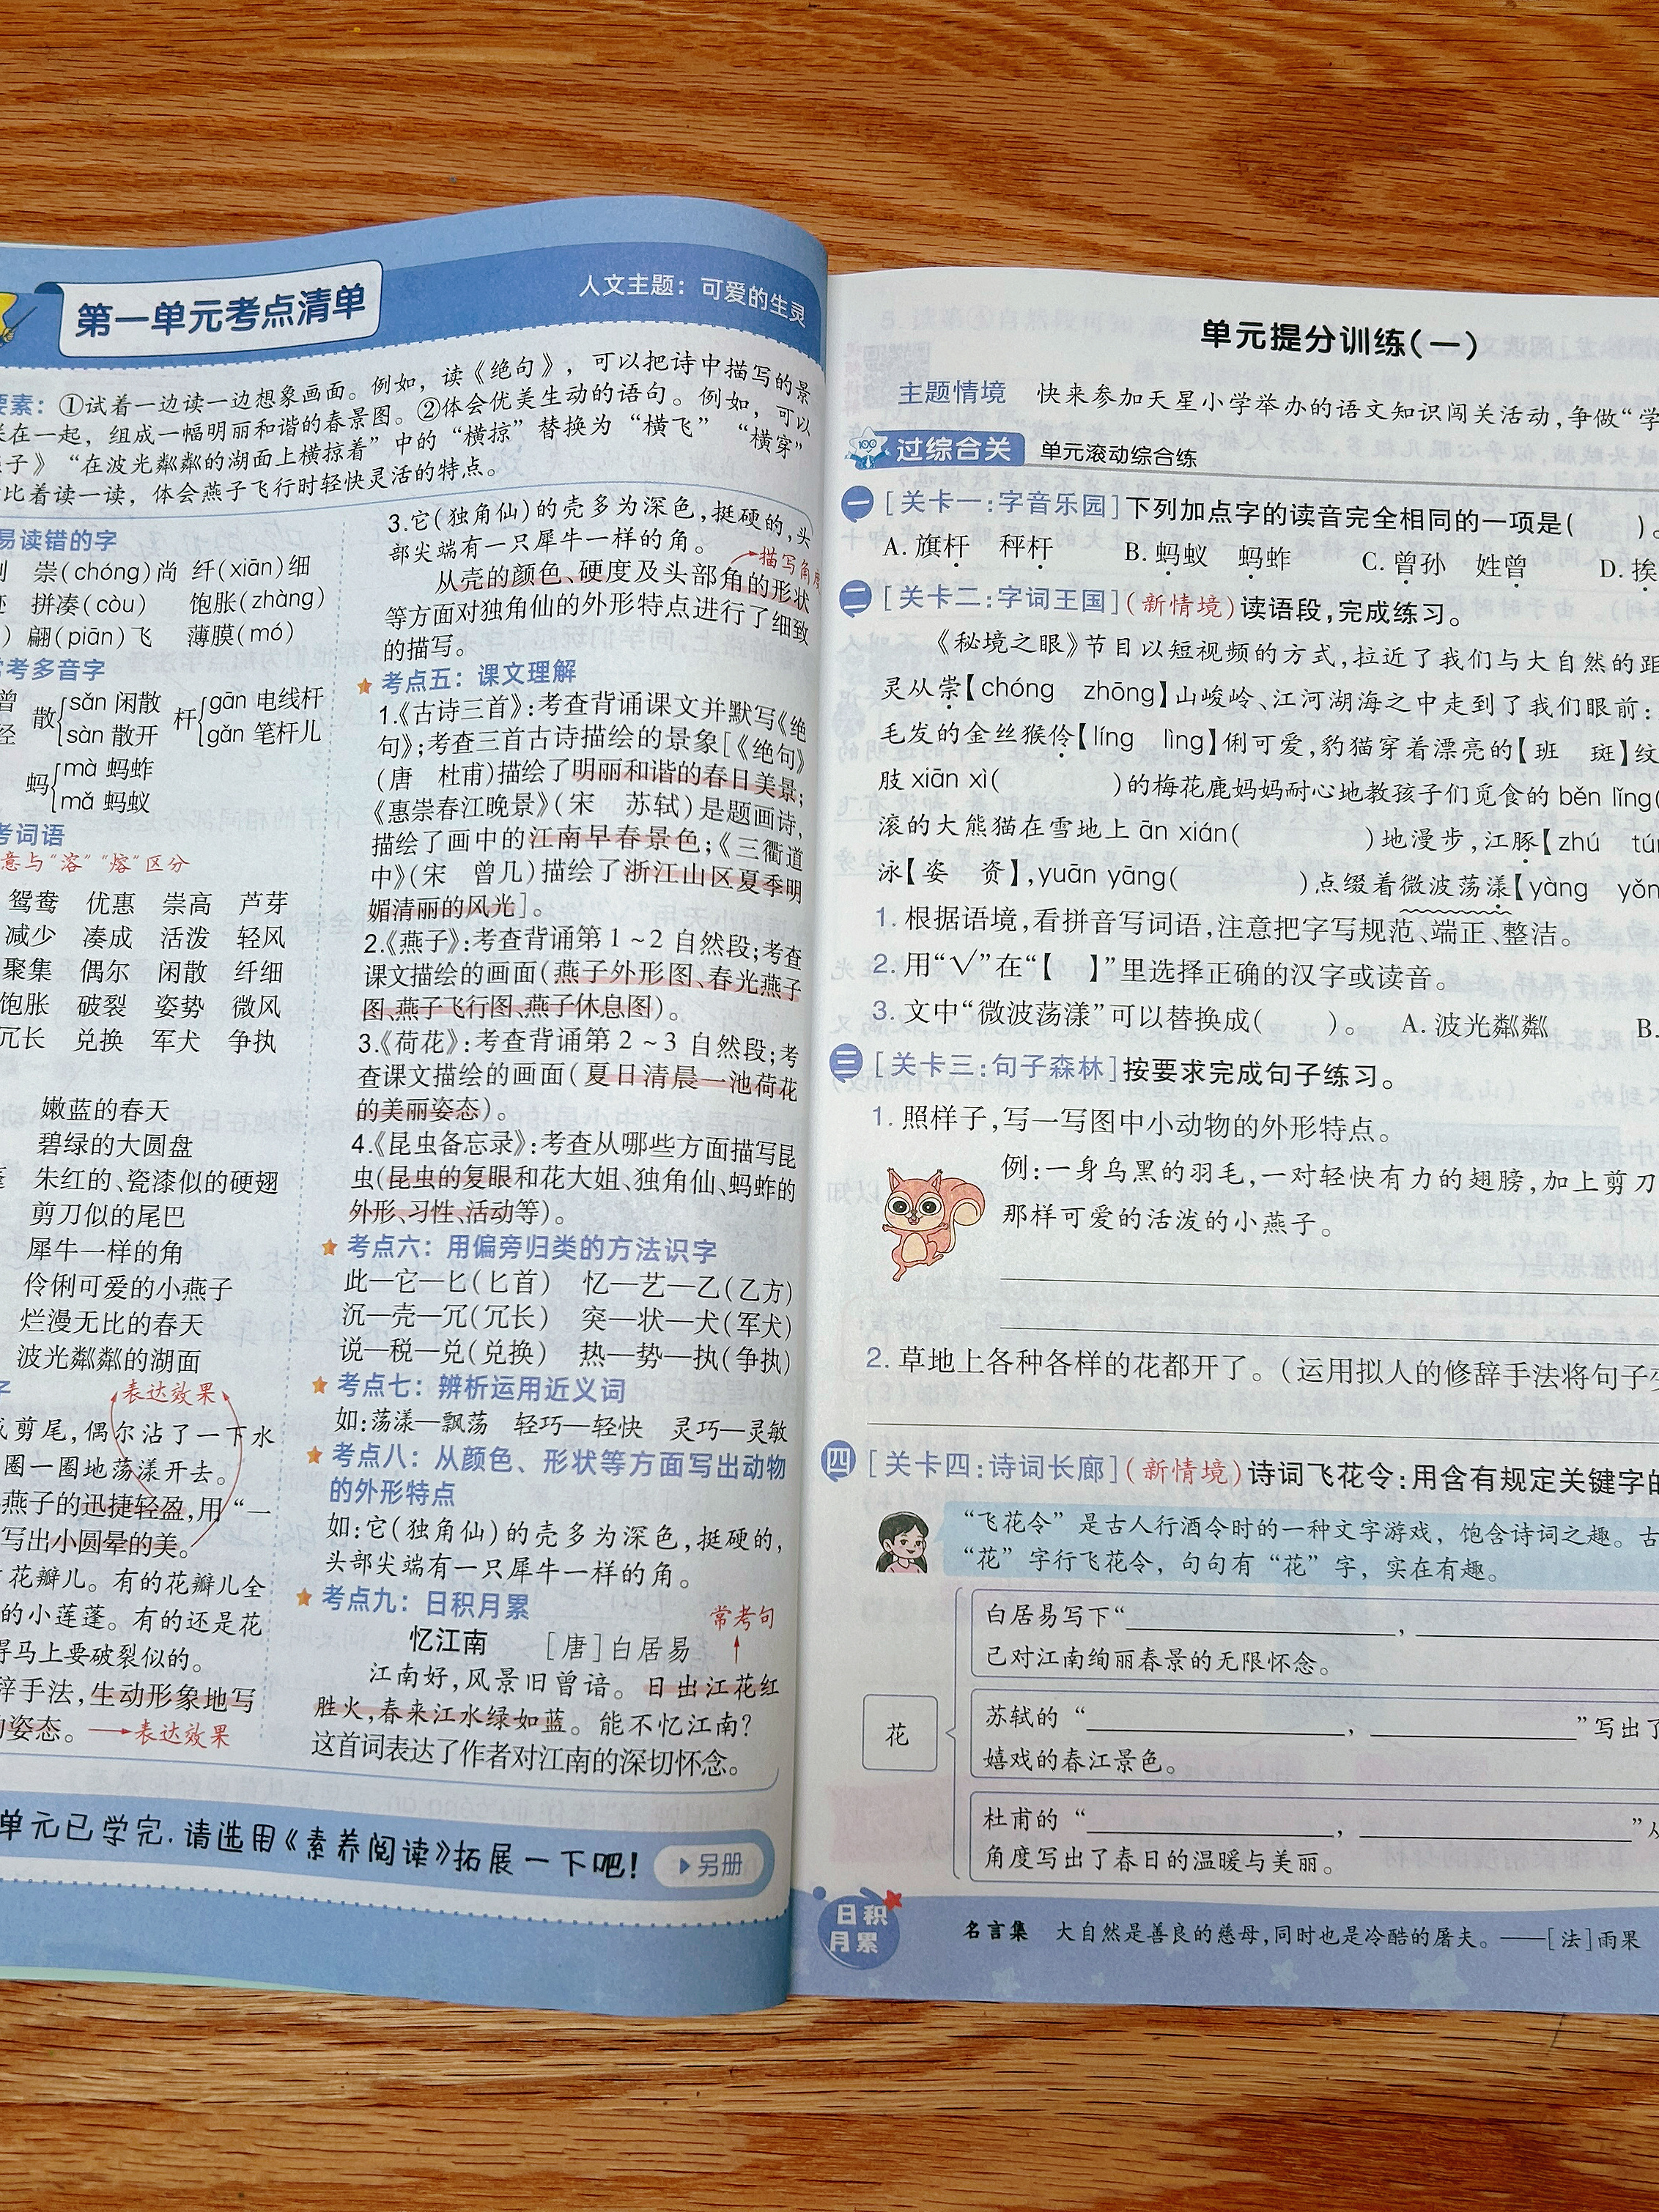 第一单元考点清单
人文主题：可爱的生灵
要素：①试着一边读一边想象画面。例如，读《绝句》，可以把诗中描写的景
在一起，组成一幅明丽和谐的春景图。②体会优美生动的语句。例如，可以
子》“在波光粼粼的湖面上横掠着”中的“横掠”替换为“横飞”“横穿”
比着读一读，体会燕子飞行时轻快灵活的特点。
易读错的字
崇(chóng)尚 纤(xiān)细
拼凑(còu) 饱胀(zhàng)
) 翩(piān)飞 薄膜(mó)
常考多音字
曾 散 sǎn 闲散 杆 gān 电线杆
经 sàn 散开 gǎn 笔杆儿
蚂 mà 蚂蚱
mǎ 蚂蚁
考词语
意与“溶”“熔”区分
鸳鸯 优惠 崇高 芦芽
减少 凑成 活泼 轻风
聚集 偶尔 闲散 纤细
饱胀 破裂 姿势 微风
冗长 兑换 军犬 争执
嫩蓝的春天
碧绿的大圆盘
朱红的、瓷漆似的硬翅
剪刀似的尾巴
犀牛一样的角
伶俐可爱的小燕子
烂漫无比的春天
波光粼粼的湖面
表达效果
剪尾，偶尔沾了一下水
圈一圈地荡漾开去。
燕子的迅捷轻盈，用“一
写出小圆晕的美。
花瓣儿。有的花瓣儿全
的小莲蓬。有的还是花
得马上要破裂似的。
辞手法，生动形象地写
姿态。→表达效果
3.它(独角仙)的壳多为深色，挺硬的，头
部尖端有一只犀牛一样的角。
描写角度
从壳的颜色、硬度及头部角的形状
等方面对独角仙的外形特点进行了细致
的描写。
考点五：课文理解
1.《古诗三首》：考查背诵课文并默写《绝
句》；考查三首古诗描绘的景象[《绝句》
(唐 杜甫)描绘了明丽和谐的春日美景；
《惠崇春江晚景》(宋 苏轼)是题画诗，
描绘了画中的江南早春景色；《三衢道
中》(宋 曾几)描绘了浙江山区夏季明
媚清丽的风光]。
2.《燕子》：考查背诵第1~2自然段；考查
课文描绘的画面(燕子外形图、春光燕子
图、燕子飞行图、燕子休息图)。
3.《荷花》：考查背诵第2~3自然段；考
查课文描绘的画面(夏日清晨一池荷花
的美丽姿态)。
4.《昆虫备忘录》：考查从哪些方面描写昆
虫(昆虫的复眼和花大姐、独角仙、蚂蚱的
外形、习性、活动等)。
考点六：用偏旁归类的方法识字
此—它—匕(匕首) 忆—艺—乙(乙方)
沉—壳—冗(冗长) 突—状—犬(军犬)
说—税—兑(兑换) 热—势—执(争执)
考点七：辨析运用近义词
如：荡漾—飘荡 轻巧—轻快 灵巧—灵敏
考点八：从颜色、形状等方面写出动物
的外形特点
如：它(独角仙)的壳多为深色，挺硬的，
头部尖端有一只犀牛一样的角。
考点九：日积月累
常考句
忆江南 [唐]白居易
江南好，风景旧曾谙。日出江花红
胜火，春来江水绿如蓝。能不忆江南？
这首词表达了作者对江南的深切怀念。
单元已学完，请选用《素养阅读》拓展一下吧！
另册
单元提分训练(一)
主题情境 快来参加天星小学举办的语文知识闯关活动，争做“学
过综合关 单元滚动综合练
一 [关卡一：字音乐园]下列加点字的读音完全相同的一项是( )。
A. 旗杆 秤杆 B. 蚂蚁 蚂蚱 C. 曾孙 姓曾 D. 挨
二 [关卡二：字词王国](新情境)读语段，完成练习。
《秘境之眼》节目以短视频的方式，拉近了我们与大自然的距
灵从崇【chóng zhōng】山峻岭、江河湖海之中走到了我们眼前：
毛发的金丝猴伶【líng lìng】俐可爱，豹猫穿着漂亮的【班 斑】纹
肢 xiān xì( )的梅花鹿妈妈耐心地教孩子们觅食的 běn lǐng(
滚的大熊猫在雪地上 ān xián( )地漫步，江豚【zhú tún
泳【姿 资】，yuān yāng( )点缀着微波荡漾【yàng yǒn
1. 根据语境，看拼音写词语，注意把字写规范、端正、整洁。
2. 用“√”在“【 】”里选择正确的汉字或读音。
3. 文中“微波荡漾”可以替换成( )。 A. 波光粼粼 B.
三 [关卡三：句子森林]按要求完成句子练习。
1. 照样子，写一写图中小动物的外形特点。
例：一身乌黑的羽毛，一对轻快有力的翅膀，加上剪刀
那样可爱的活泼的小燕子。
2. 草地上各种各样的花都开了。(运用拟人的修辞手法将句子变
四 [关卡四：诗词长廊](新情境)诗词飞花令：用含有规定关键字的
“飞花令”是古人行酒令时的一种文字游戏，饱含诗词之趣。古
“花”字行飞花令，句句有“花”字，实在有趣。
花
白居易写下“ ，
己对江南绚丽春景的无限怀念。
苏轼的“ ， ”写出了
嬉戏的春江景色。
杜甫的“ ， ”从
角度写出了春日的温暖与美丽。
日积月累
名言集 大自然是善良的慈母，同时也是冷酷的屠夫。——[法]雨果